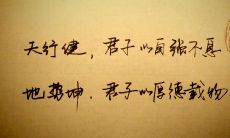 天行健，君子以自强不息
地勢坤，君子以厚德載物